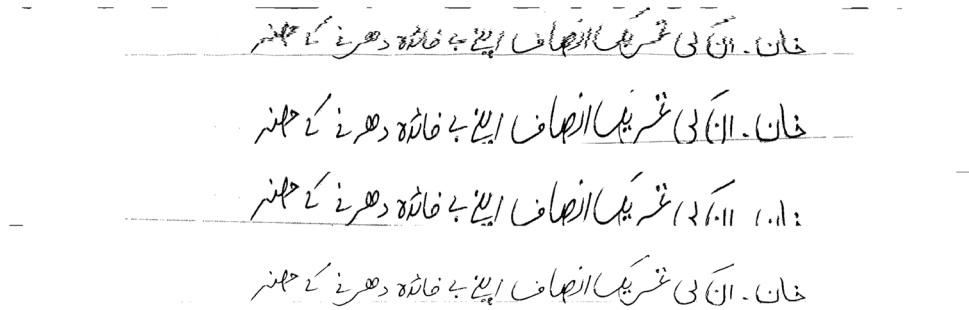 خان۔ ان کی تحریک انصاف اپنے بے فائدہ دھرنے کے حصنہ
خان۔ ان کی تحریک انصاف اپنے بے فائدہ دھرنے کے حصنہ
خان۔ ان کی تحریک انصاف اپنے بے فائدہ دھرنے کے حصنہ
خان۔ ان کی تحریک انصاف اپنے بے فائدہ دھرنے کے حصنہ